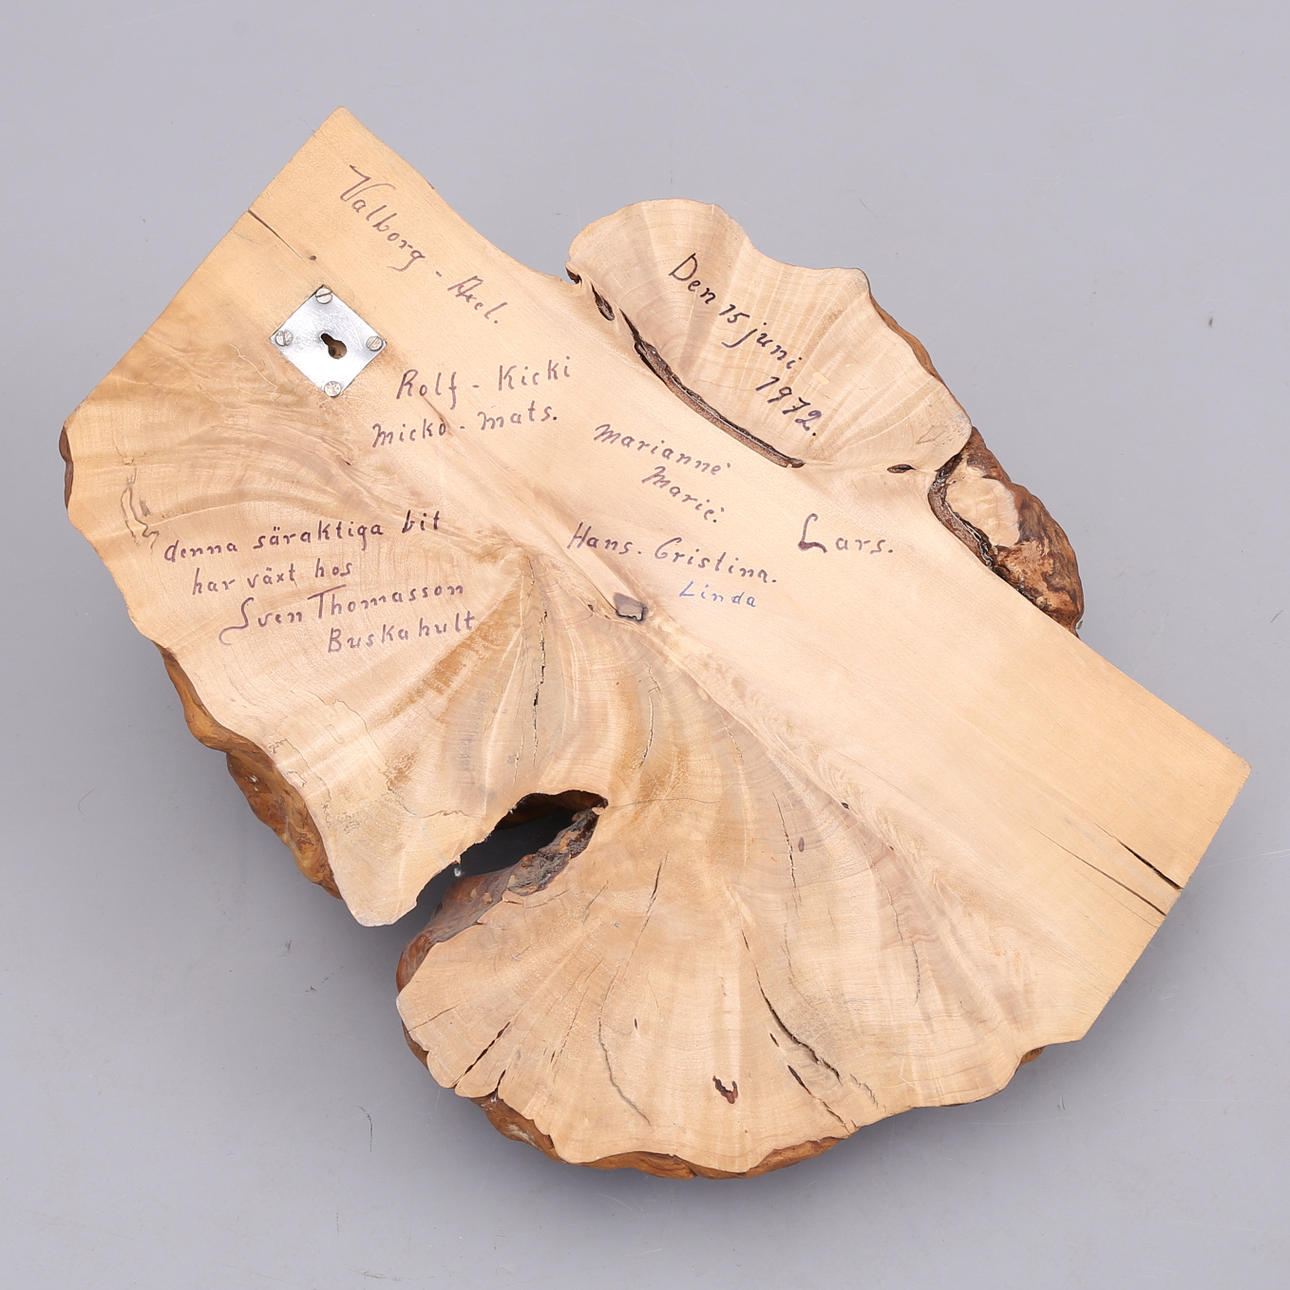 Valborg - Axel.
Rolf - Kicki
Micko - Mats.
Den 15 juni
1972.
Marianne
Marie.
Lars.
Hans. Cristina.
Linda
denna säraktiga bit
har växt hos
Sven Thomasson
Buskahult